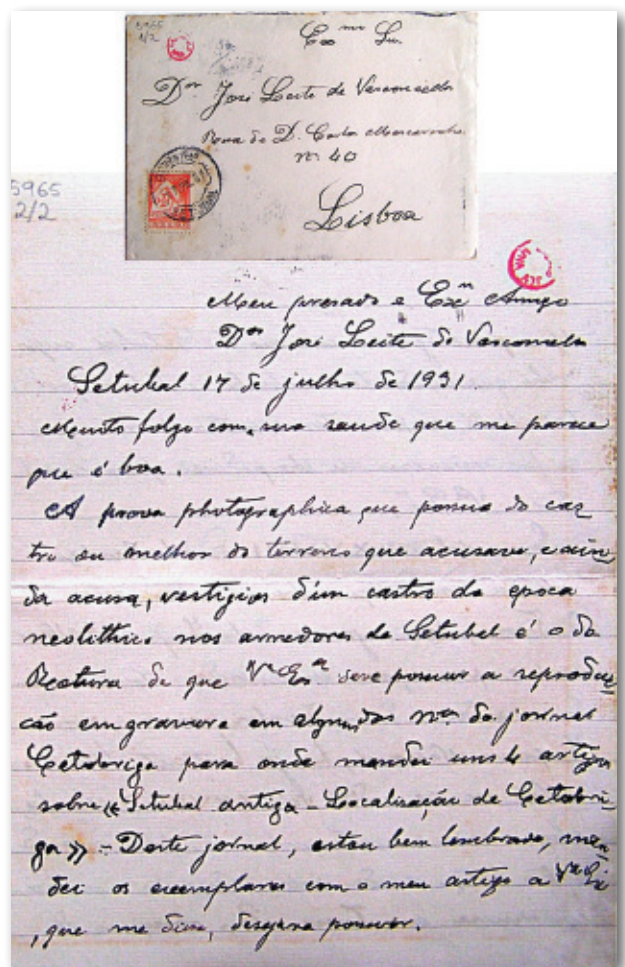 5965
1/2
Exmo Sr.
Dor José Leite de Vasconcellos
Rua de D. Carlos Mascarenhas
nº 40
Lisboa
5965
2/2
Meu presado e Exº Amigo
Dor José Leite de Vasconcellos
Setubal 17 de julho de 1931.
Muito folgo com a sua saude que me parece
que é boa.
A prova photographica que possuo do cas
tro ou melhor do terreno que acusava, e ain
da acusa, vestigios d'um castro da epoca
neolithica nos arredores de Setubal é o da
Rotura de que Vª Exª deve possuir a reprodu
ção em gravura em alguns dos nos do jornal
Cetobriga para onde mandei uns 4 artigos
sobre «Setubal antiga - Localisação de Cetobri
ga» - Deste jornal, estou bem lembrado, man
dei os exemplares com o meu artigo a Vª Exª
, que me disse, desejava possuir.